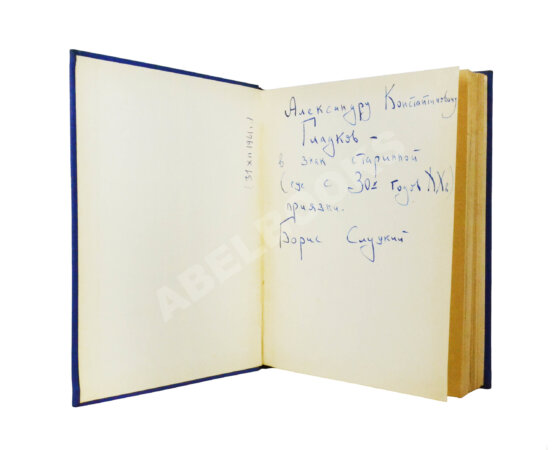 (31 XII 1961 г.)
Александру Константиновичу
Гладков –
в знак старинной
(еще с 30х годов XX в.)
приязни.
Борис Слуцкий
ABELBOOKS